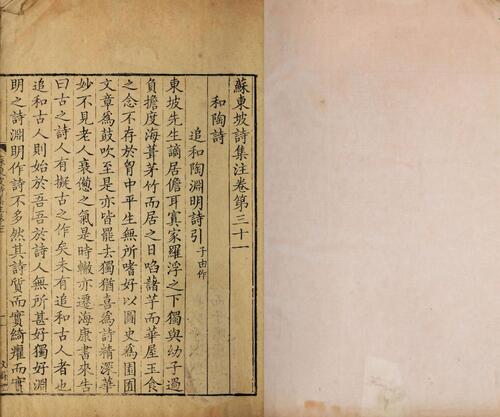 蘇東坡詩集注卷第三十一
和陶詩
追和陶淵明詩引 子由作
東坡先生謫居儋耳寘家羅浮之下獨與幼子過
負擔度海葺茅竹而居之日啗藷芋而華屋玉食
之念不存於胷中平生無所嗜好以圖史為園囿
文章為鼓吹至是亦皆罷去獨猶喜為詩精深華
妙不見老人衰憊之氣是時轍亦遷海康書來告
曰古之詩人有擬古之作矣未有追和古人者也
追和古人則始於吾吾於詩人無所甚好獨好淵
明之詩淵明作詩不多然其詩質而實綺癯而實